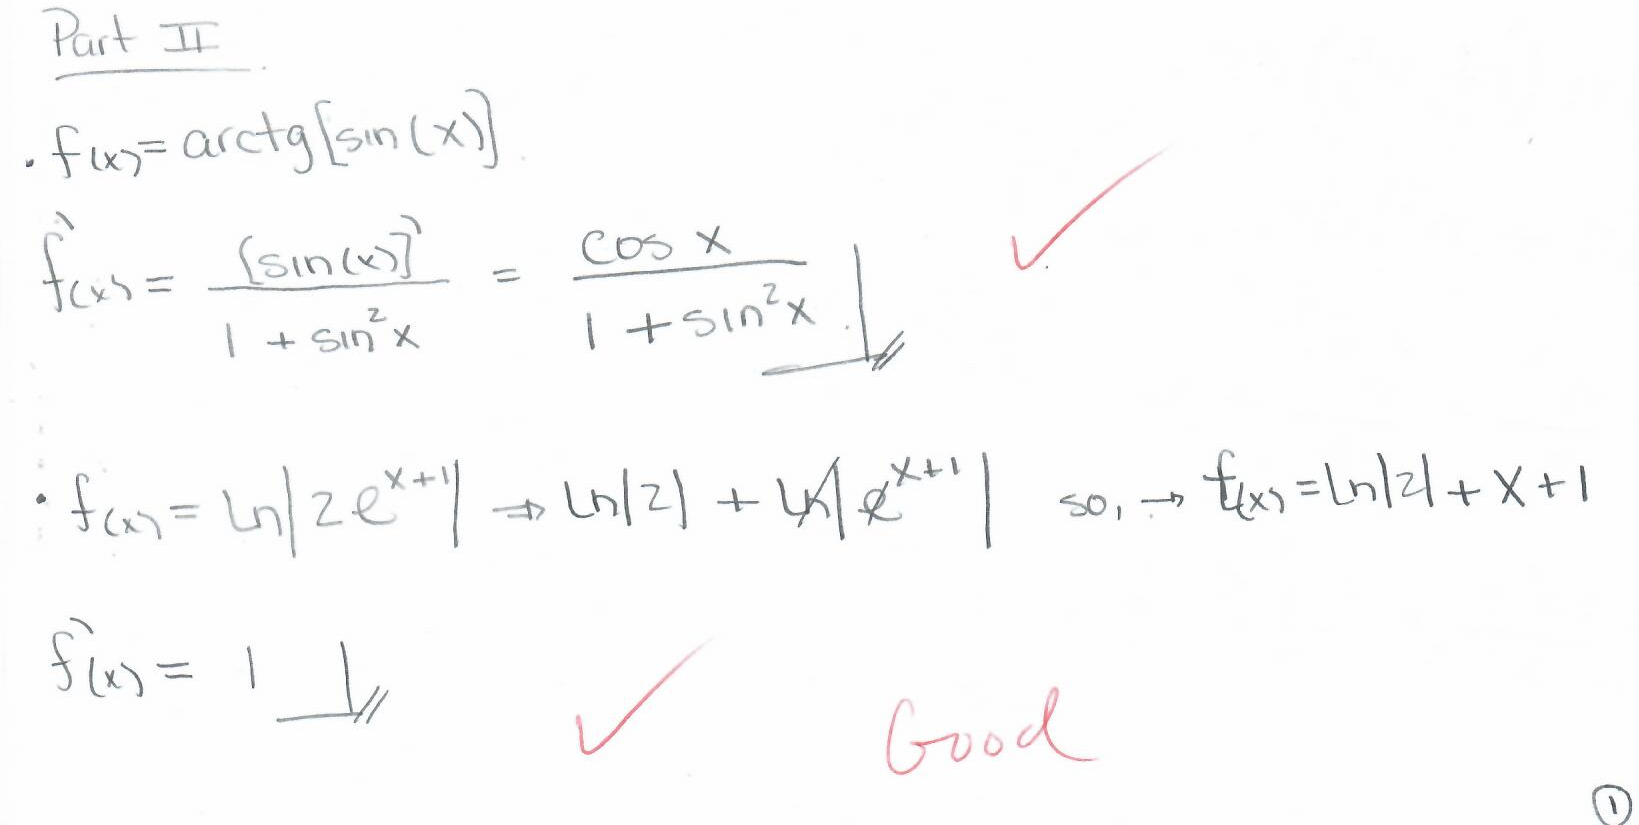 Part II
• f(x) = arctg[sin(x)]
f'(x) = [sin(x)]' / 1 + sin²x = cos x / 1 + sin²x
• f(x) = ln|2e^(x+1)| ⇒ ln|2| + ln|e^(x+1)| so, → f(x) = ln|2| + x + 1
f'(x) = 1
Good
1